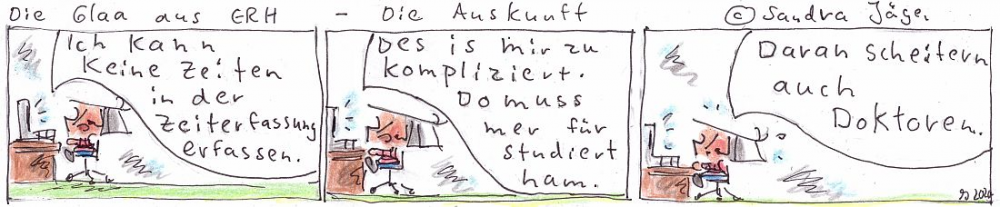 Die Glaa aus ERH - Die Auskunft © Sandra Jäger
Ich kann
keine Zeiten
in der
Zeiterfassung
erfassen.
Des is mir zu
kompliziert.
Do muss
mer für
studiert
ham.
Daran scheitern
auch
Doktoren.